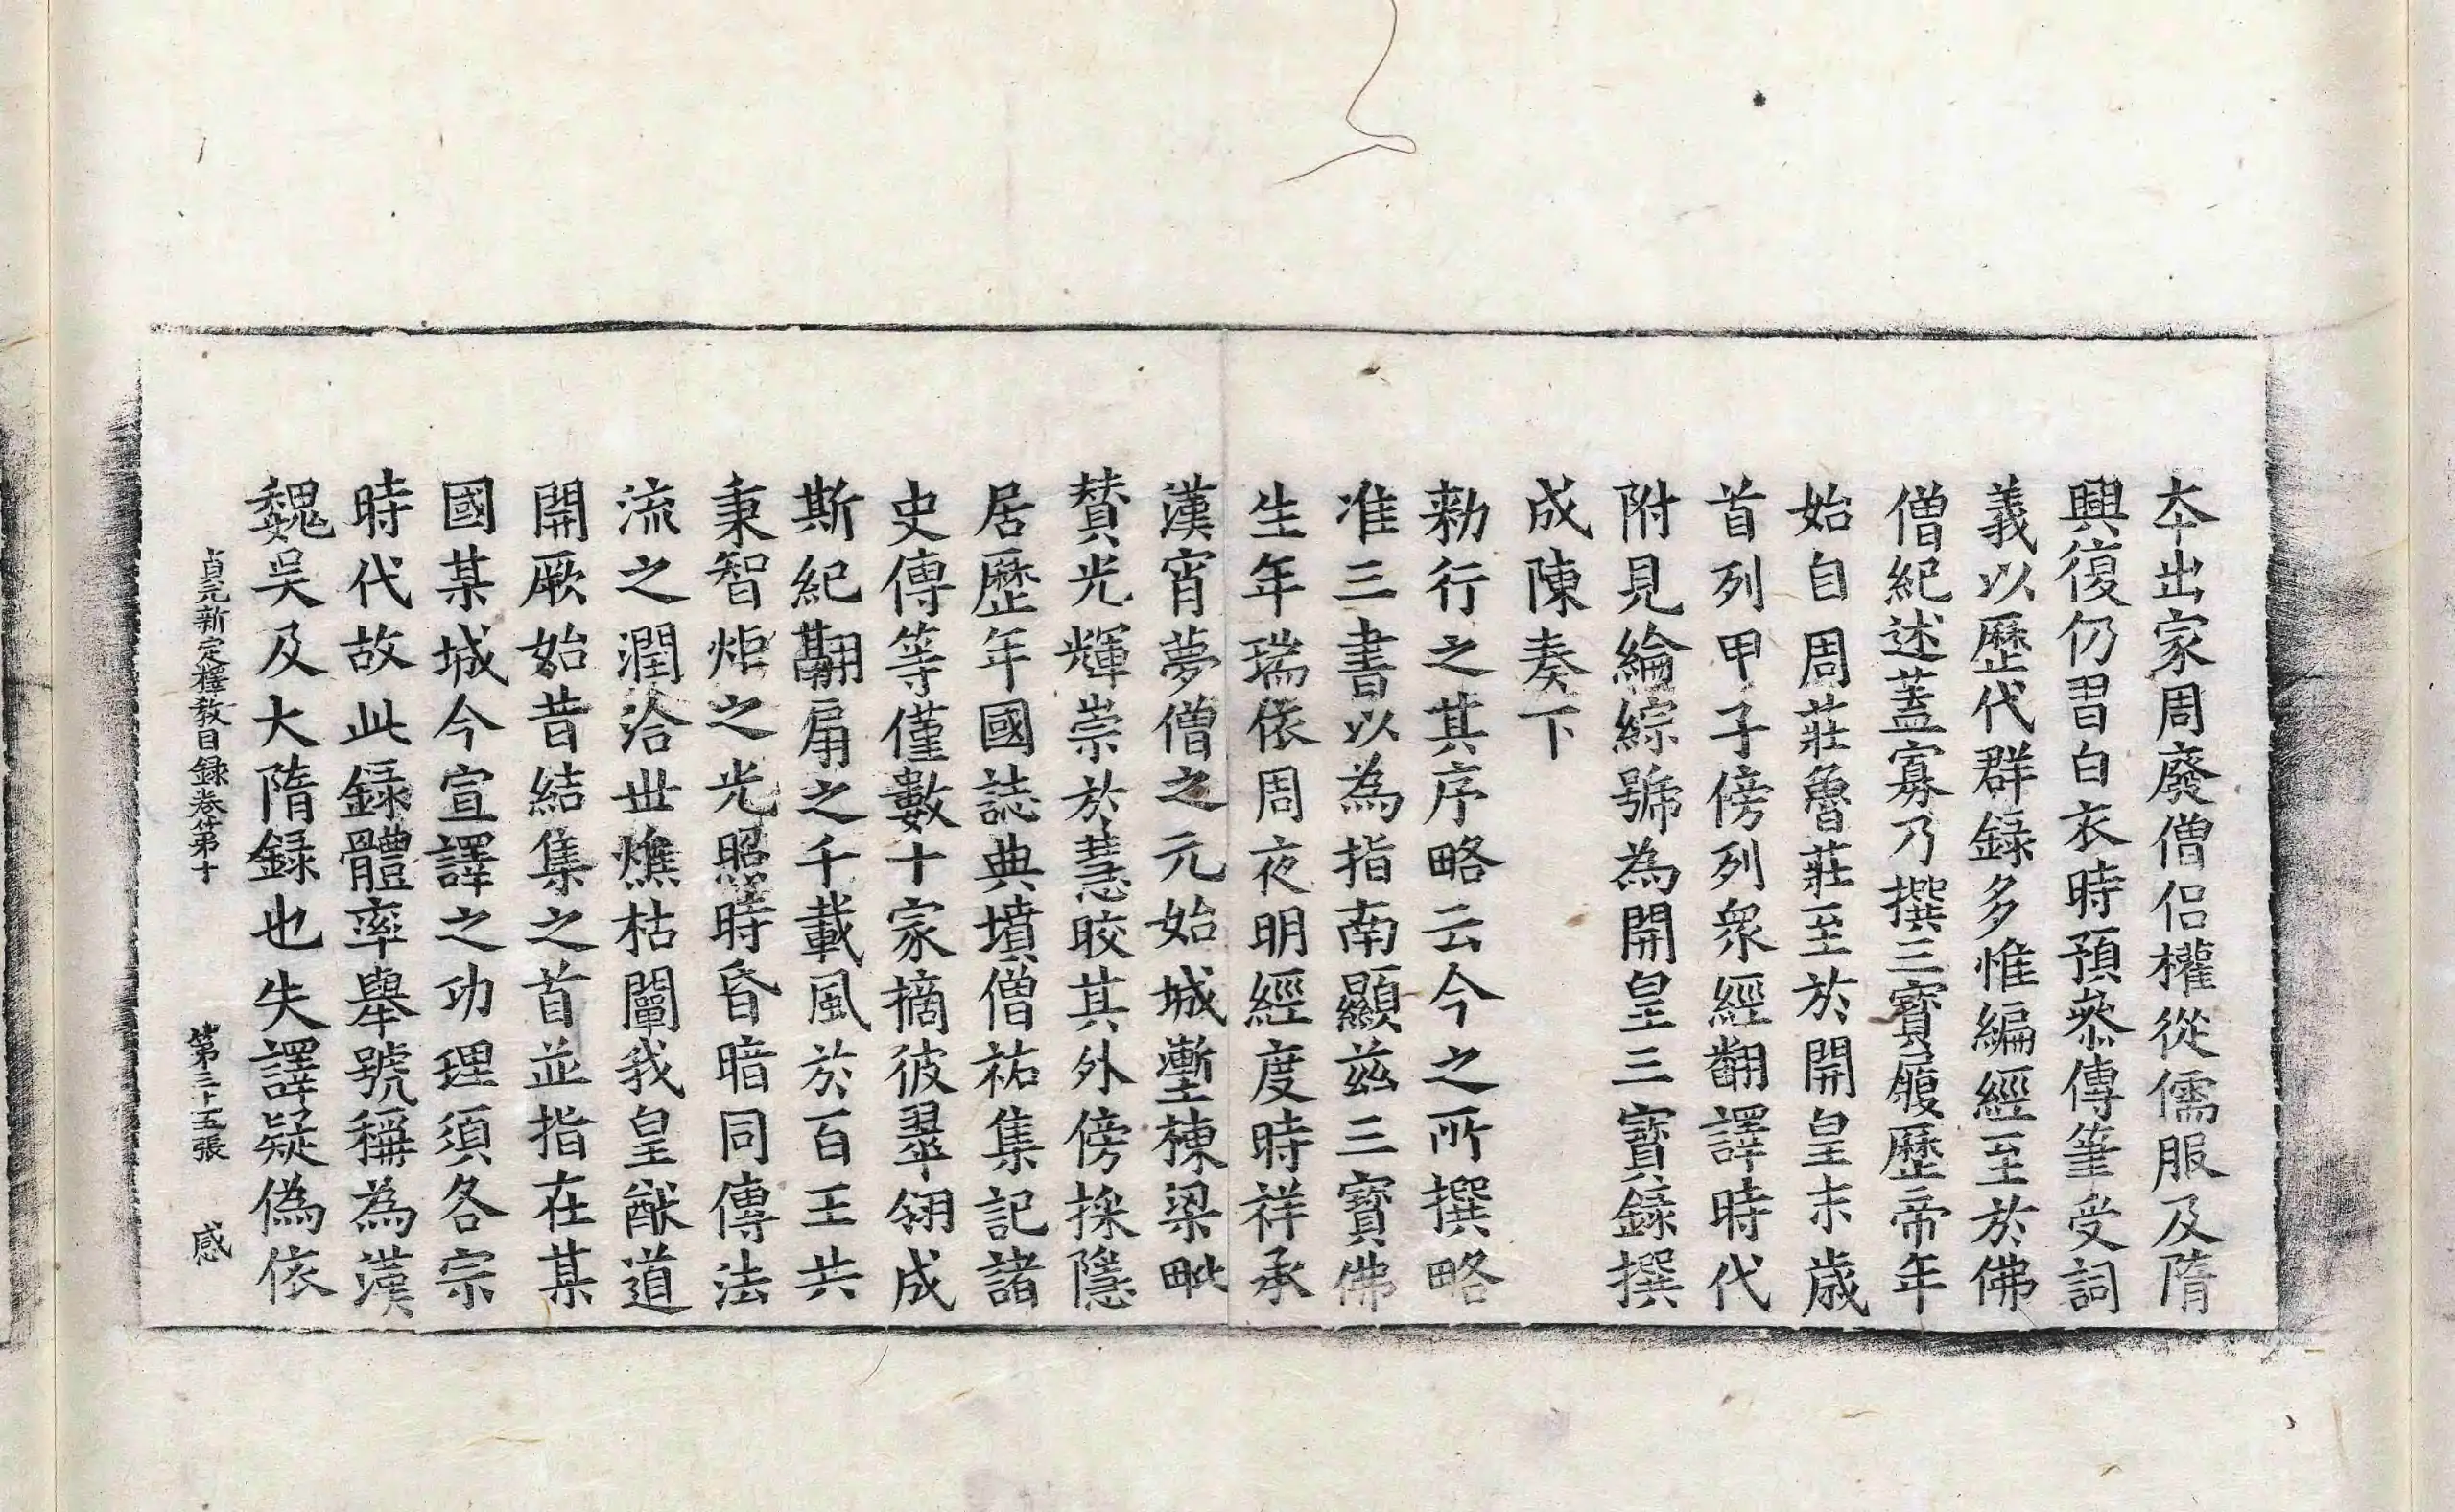 夲出家周廢僧侣權從儒服及隋
興復仍習白衣時預叅傳筆受詞
義以歷代群録多惟編經至於佛
僧紀述蓋寡乃撰三寶履歷帝年
始自周莊魯莊至於開皇末歳
首列甲子傍列衆經翻譯時代
附見綸綜號為開皇三寶録撰
成陳奏下
勑行之其序略云今之所撰略
准三書以為指南顯兹三寶佛
生年瑞依周夜明經度時祥承
漢宵夢僧之元始城塹棟梁毗
賛光輝崇於慧皎其外傍採隱
居歷年國誌典墳僧祐集記諸
史傳等僅數十家摘彼翠翎成
斯紀翻扇之千載風於百王共
秉智炬之光照時昏暗同傳法
流之潤洽世燋枯闡我皇猷道
開厥始昔結集之首並指在某
國某城今宣譯之功理須各宗
時代故此録體率舉號稱為漢
魏吴及大隋録也失譯疑偽依
貞元新定釋教目録卷第十　第三十五張　感